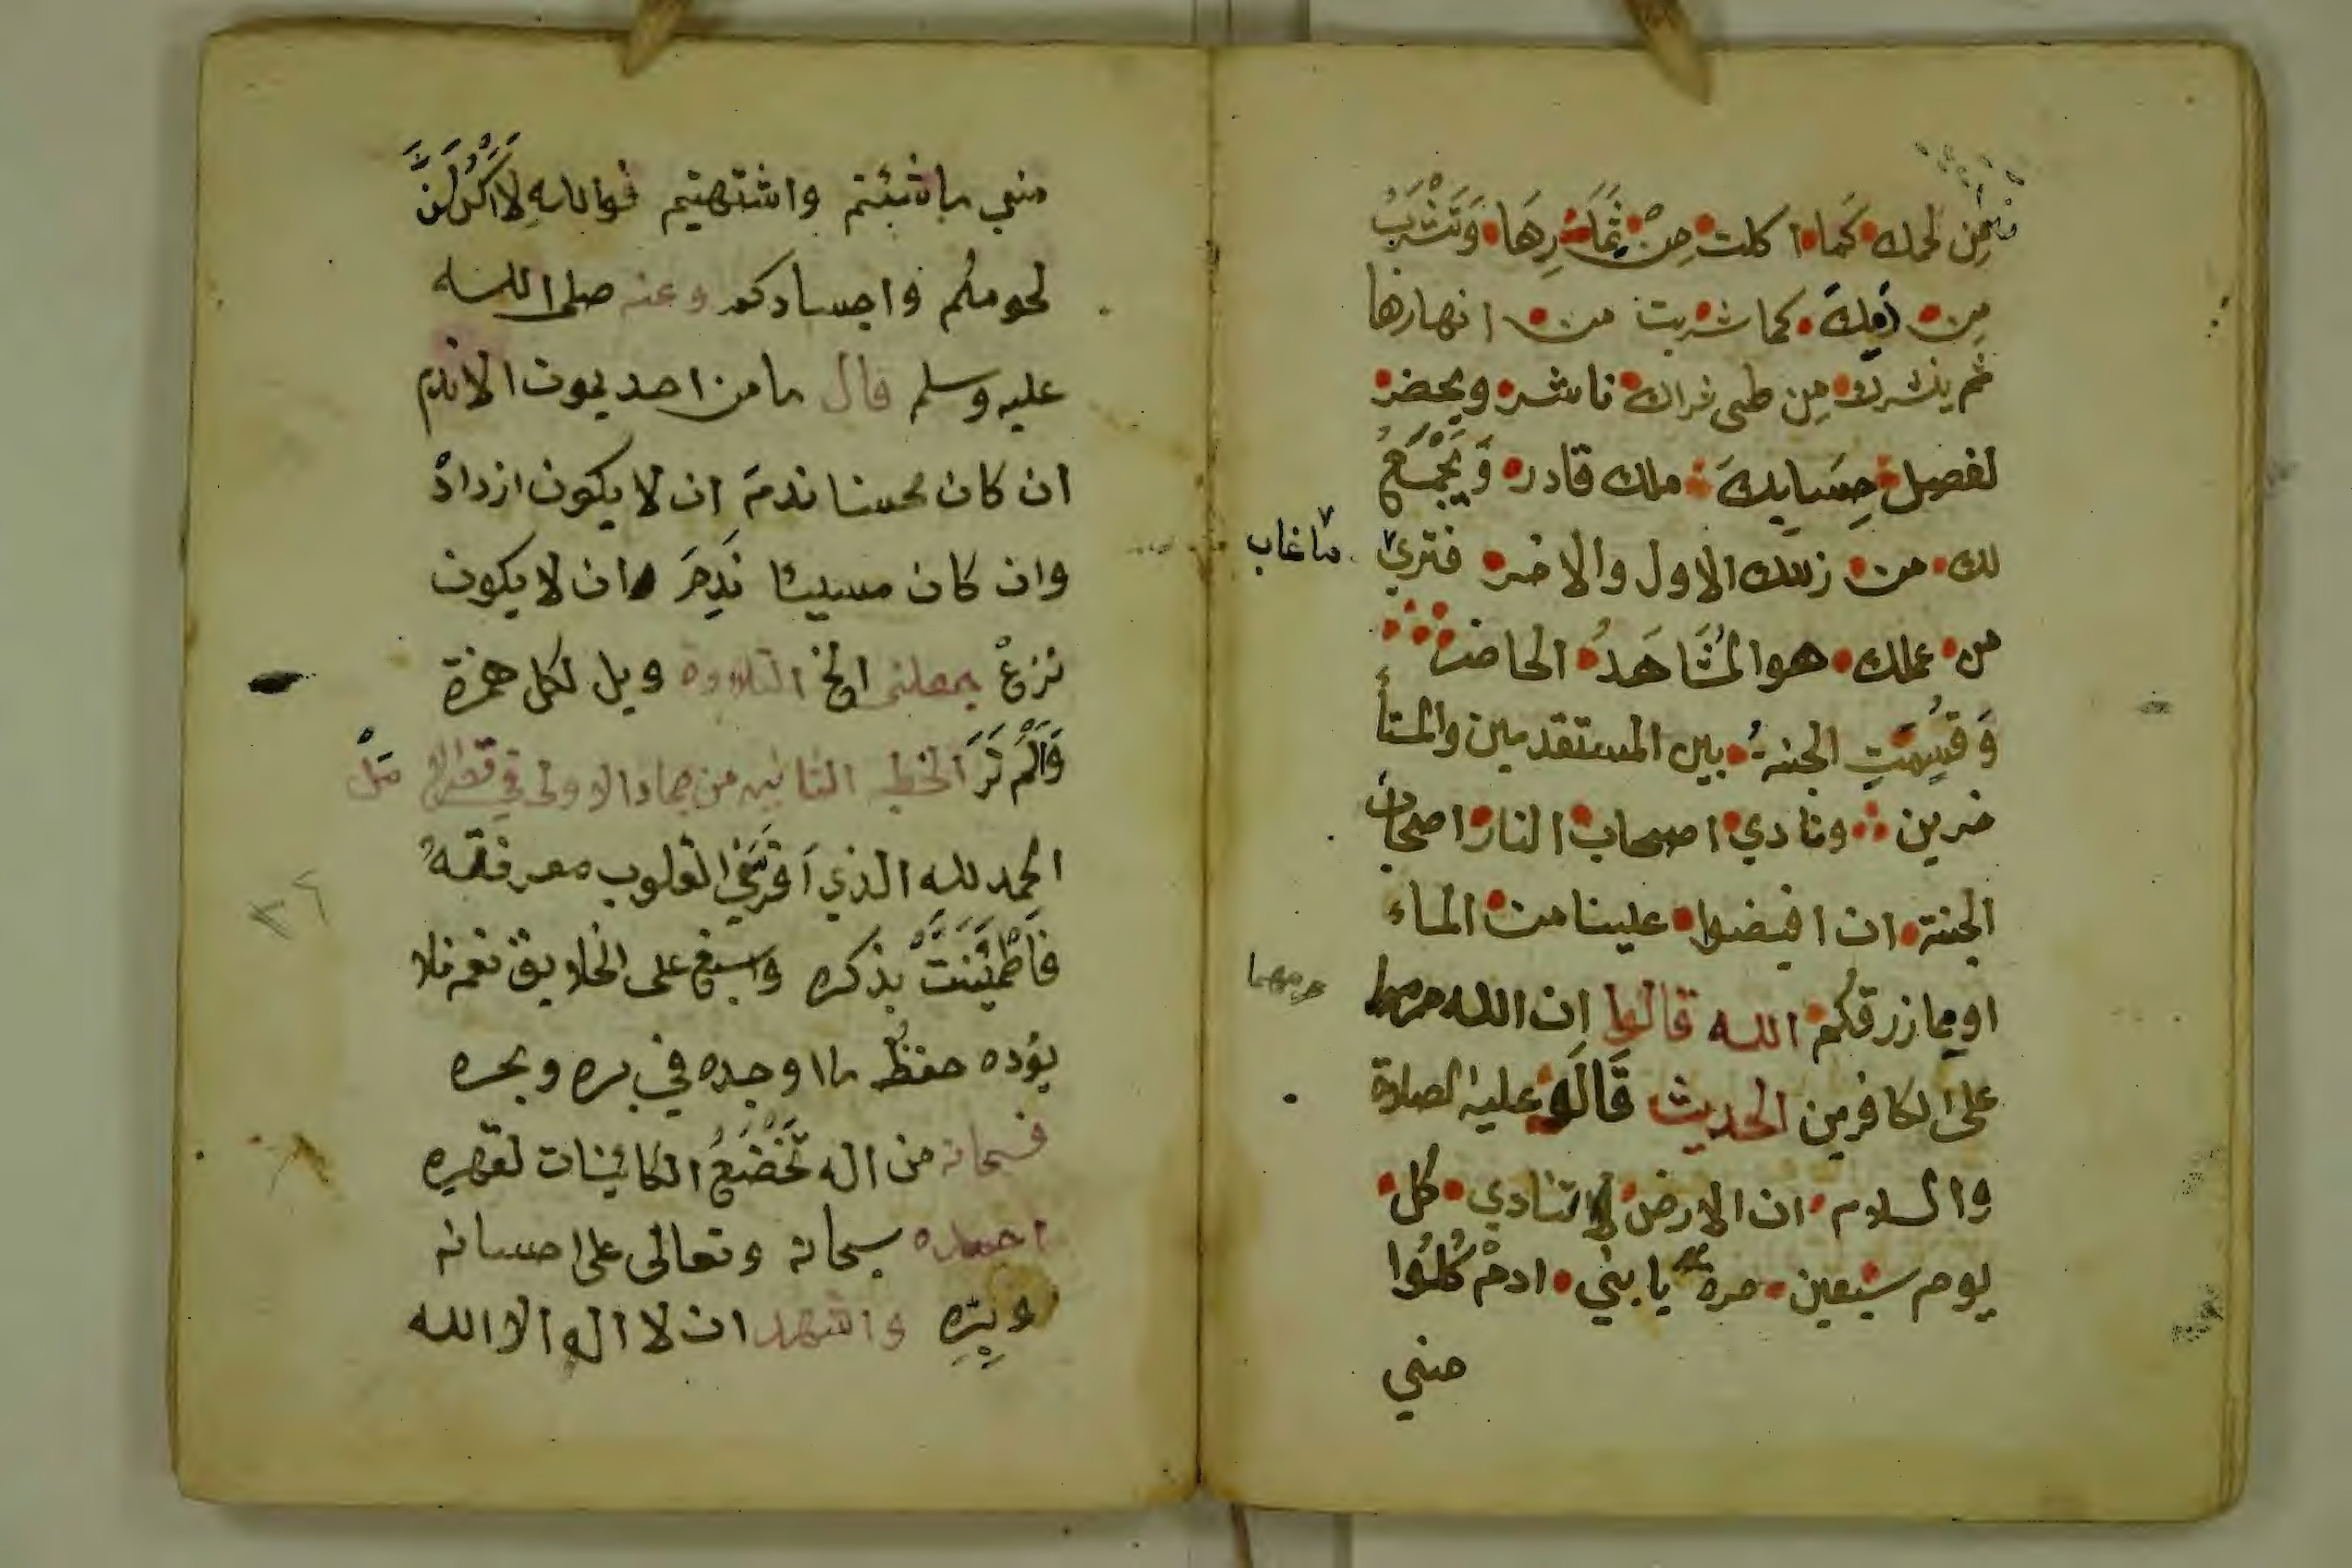 من لحمك كما اكلت من ثمارها وتشرب
من دمك كما شربت من انهارها
ثم ينشرك من طي ثراك ناشر ويحضر
لفصل حسابك ملك قادر ويجمع
لك من زللك الاول والاخر فترى ما غاب
من عملك هو المشاهد الحاضر
وقسمت الجنة بين المستقدمين والمستأ
خرين ونادي اصحاب النار اصحاب
الجنة ان افيضوا علينا من الماء
او مما رزقكم الله قالوا ان الله حرمهما
حرمهما
على الكافرين الحديث قال عليه الصلاة
والسلام ان الارض لتنادي كل
يوم سبعين مرة يا بني ادم كلوا
مني
مني ما شئتم واشتهيتم فوالله لاكلن
لحومكم واجسادكم وعنه صلى الله
عليه وسلم قال ما من احد يموت الا ندم
ان كان محسنا ندم ان لا يكون ازداد
وان كان مسيئا ندم ان لا يكون
نزع جعلني الخ التلاوة ويل لكل همزة
وألم تر الخطبة الثانية من جماد الاولى في
الحمد لله الذي القلوب معرفته
فاطمئنت بذكره واسبغ على الخلايق نعمه فلا
يؤده حفظ ما اوجده في بره وبحره
فسبحانه من اله تخضع الكائينات لقهره
احمده سبحانه وتعالى على احسانه
وبره واشهد ان لا اله الا الله